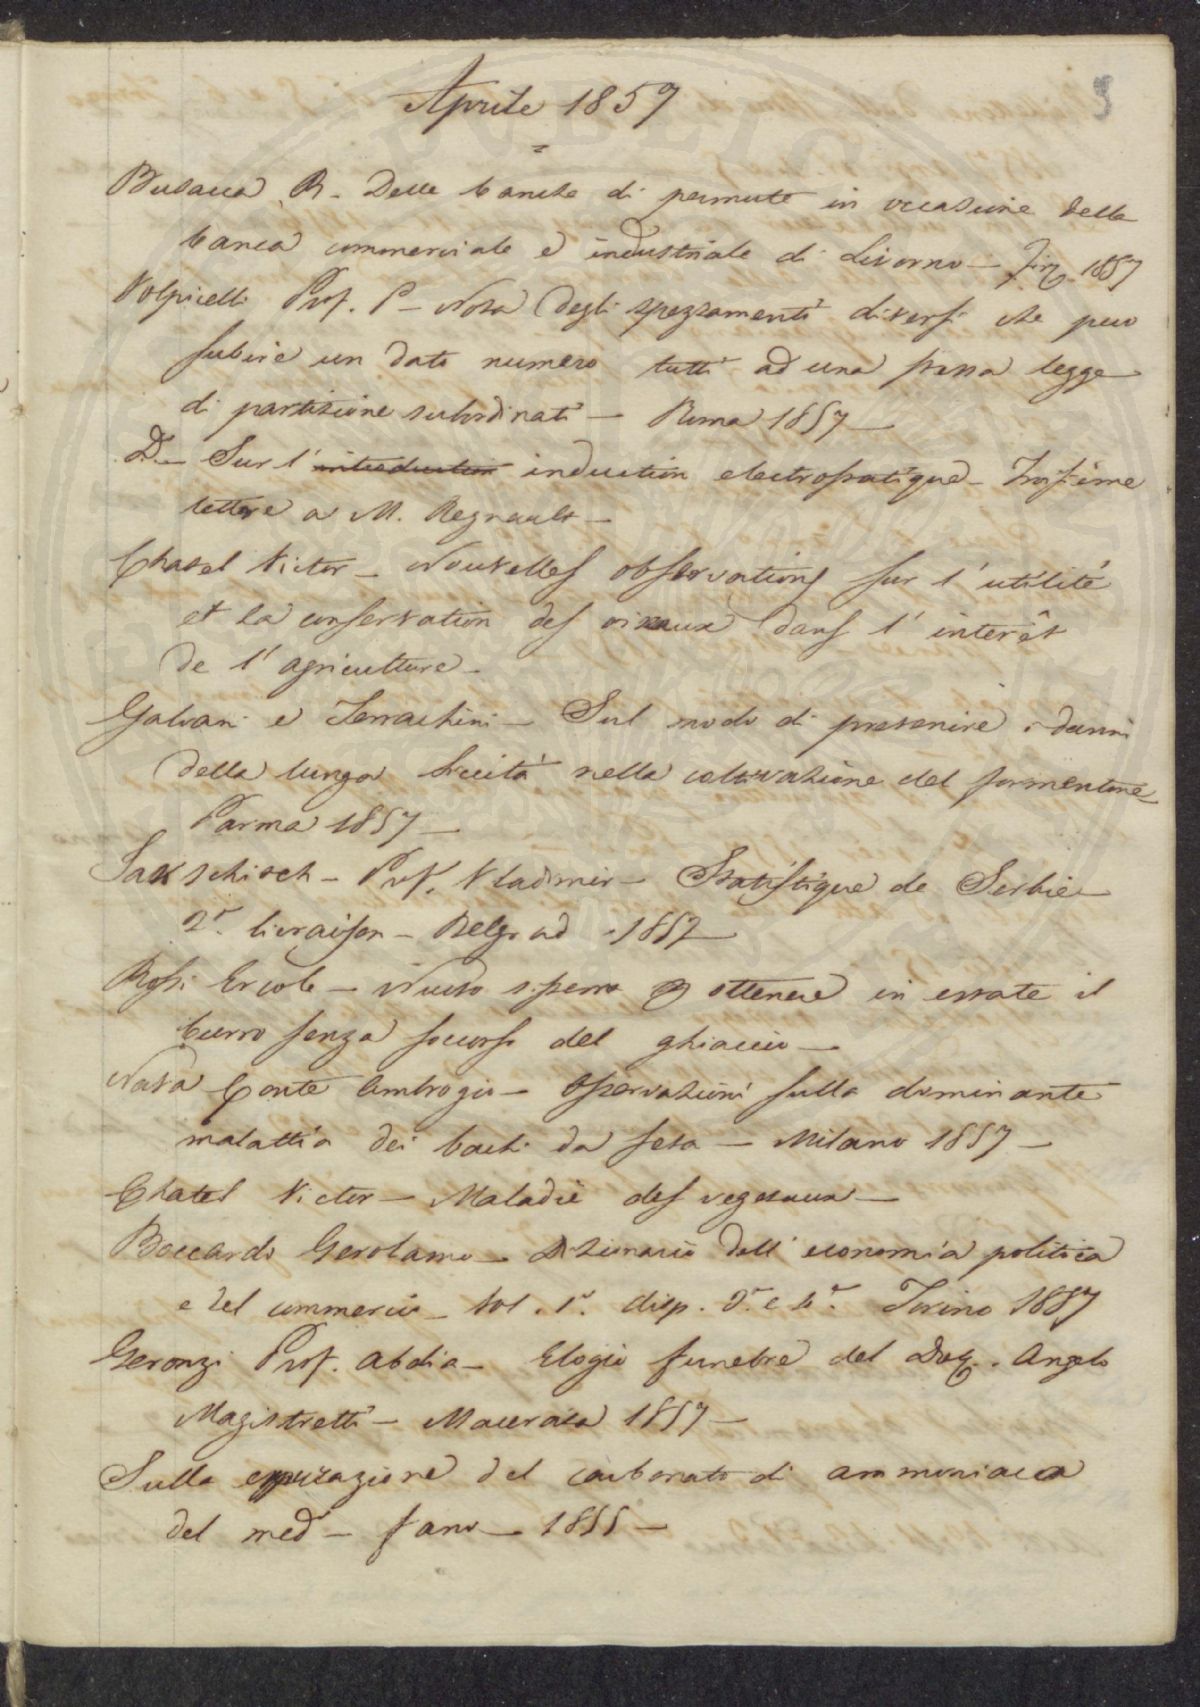 9
Aprile 1857
Busacca R. Delle banche di permute in occasione della
banca commerciale e industriale di Livorno — Fir. 1857
Volpicelli Prof. P — Nota degli spezzamenti diversi che puo
subire un dato numero tutti ad una stessa legge
di partizione subordinati — Roma 1857 —
D.— Sur l' introduction induction electrostatique — Troisième
lettre a M. Regnault —
Chatel Victor — Nouvelles observations sur l' utilité
et la conservation des oiseaux dans l' interêt
de l' agriculture —
Galvani e Terrachini — Sul modo di prevenire i danni
della lunga siccità nella coltivazione del formentone —
Parma 1857 —
Jakschisch — Prof. Vladimir — Statistique de Serbie —
2.e livraison — Belgrad 1857 —
Rossi Ercole — Nuovo sistema ottenere in estate il
burro senza soccorso del ghiaccio —
Nava Conte Ambrogio — Osservazioni sulla dominante
malattia dei bachi da seta — Milano 1857 —
Chatel Victor — Maladie des vegetaux —
Boccardo Gerolamo — Dizionario dell' economia politica
e del commercio — Vol. 1.° disp. Torino 1857
Geronzi Prof. Abdia — Elogio funebre del Dott. Angelo
Magistretti — Macerata 1857 —
Sulla del carbonato di ammoniaca
del med — Fano — 1855 —